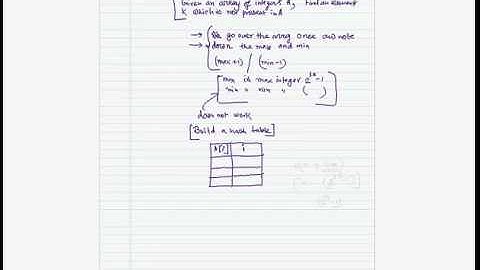 Given an array of integers A, find an element
K which is not present in A
→ We go over the array once and note
→ down the max and min
(max+1) / (min-1)
max is max integer 2^32-1
min " min " ( )
does not work
[Build a hash table]
A[i] i